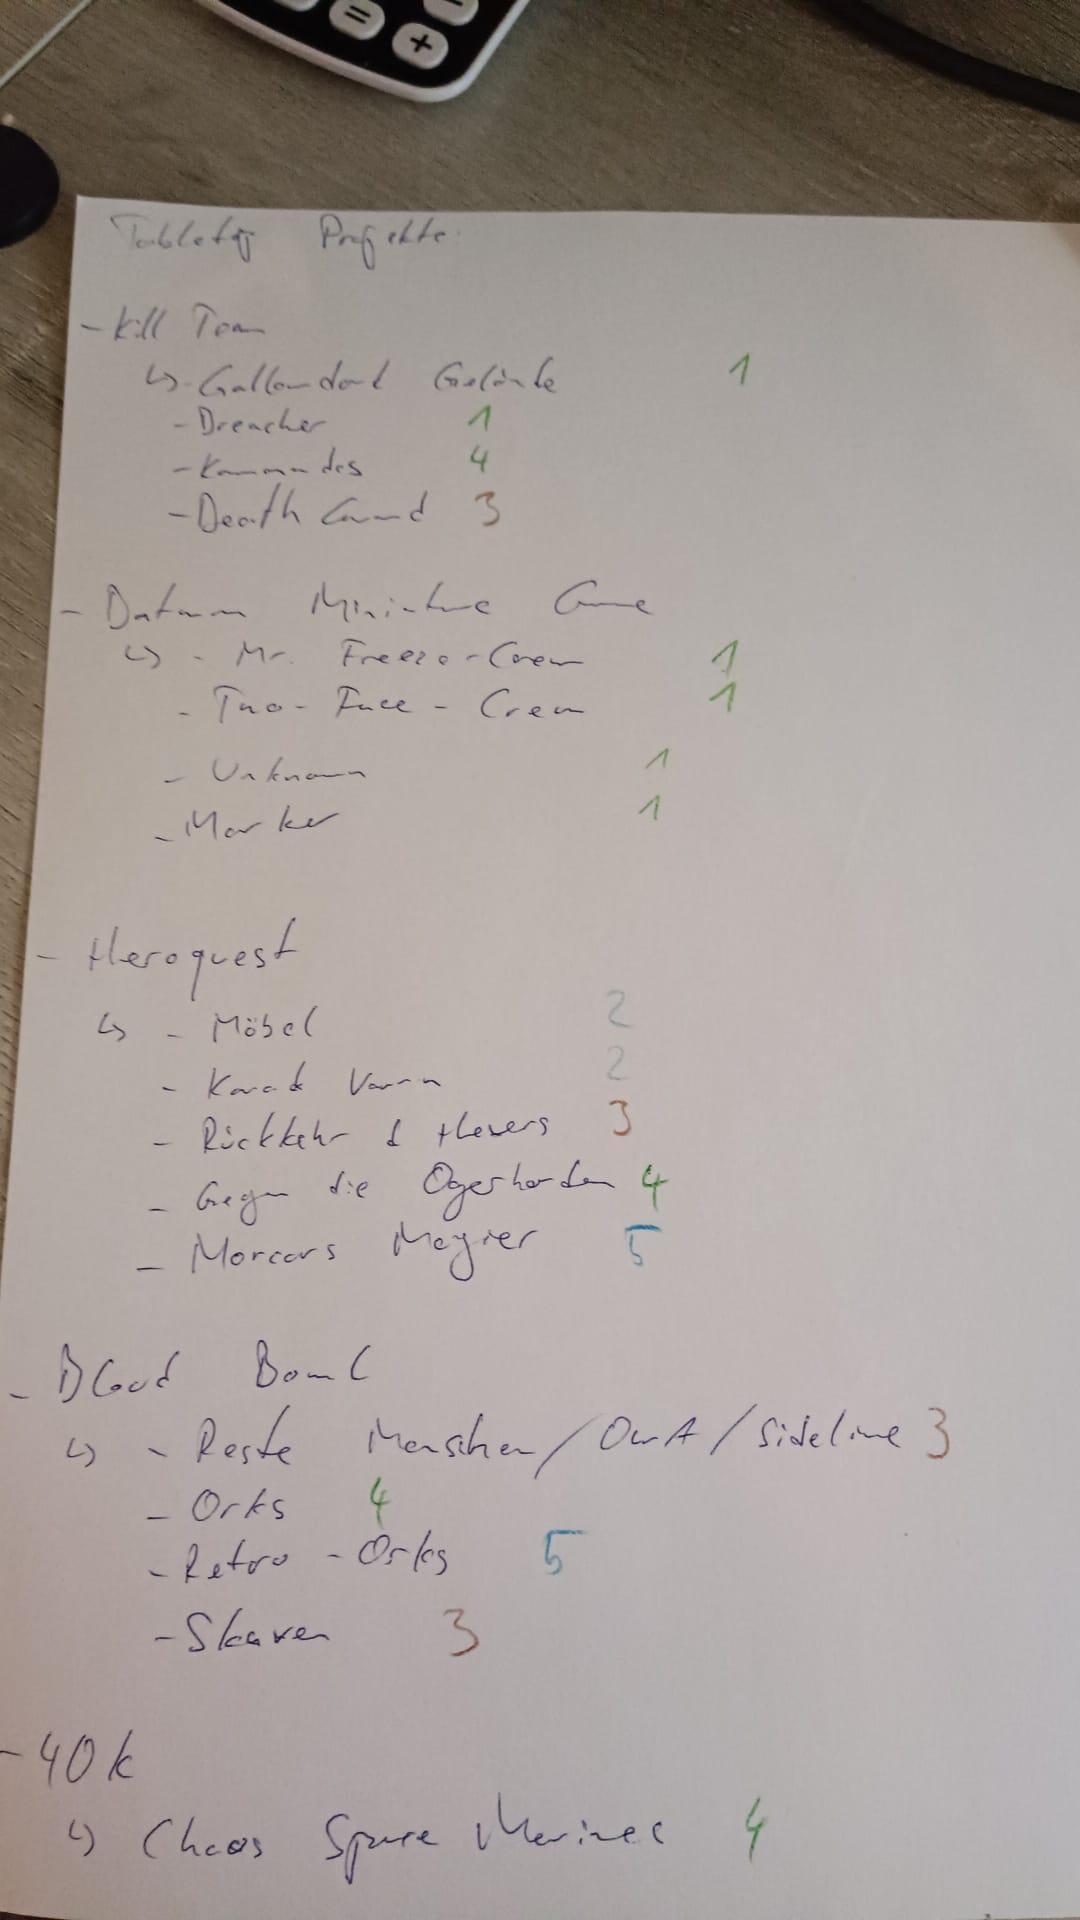 =
+
Tabletop Projekte:
- Kill Team
↳ - Gallowdark Gelände 1
- Breacher 1
- Kommandos 4
- Death Guard 3
- Batman Miniature Game
↳ - Mr. Freeze-Crew 1
- Two-Face-Crew 1
- Unknown 1
- Marker 1
- Heroquest
↳ - Möbel 2
- Karak Varn 2
- Rückkehr d Hexers 3
- Gegen die Ogerhorden 4
- Morcars Magier 5
- Blood Bowl
↳ - Reste Menschen / OWA / Sideline 3
- Orks 4
- Retro-Orks 5
- Skaven 3
- 40k
↳ Chaos Space Marines 4